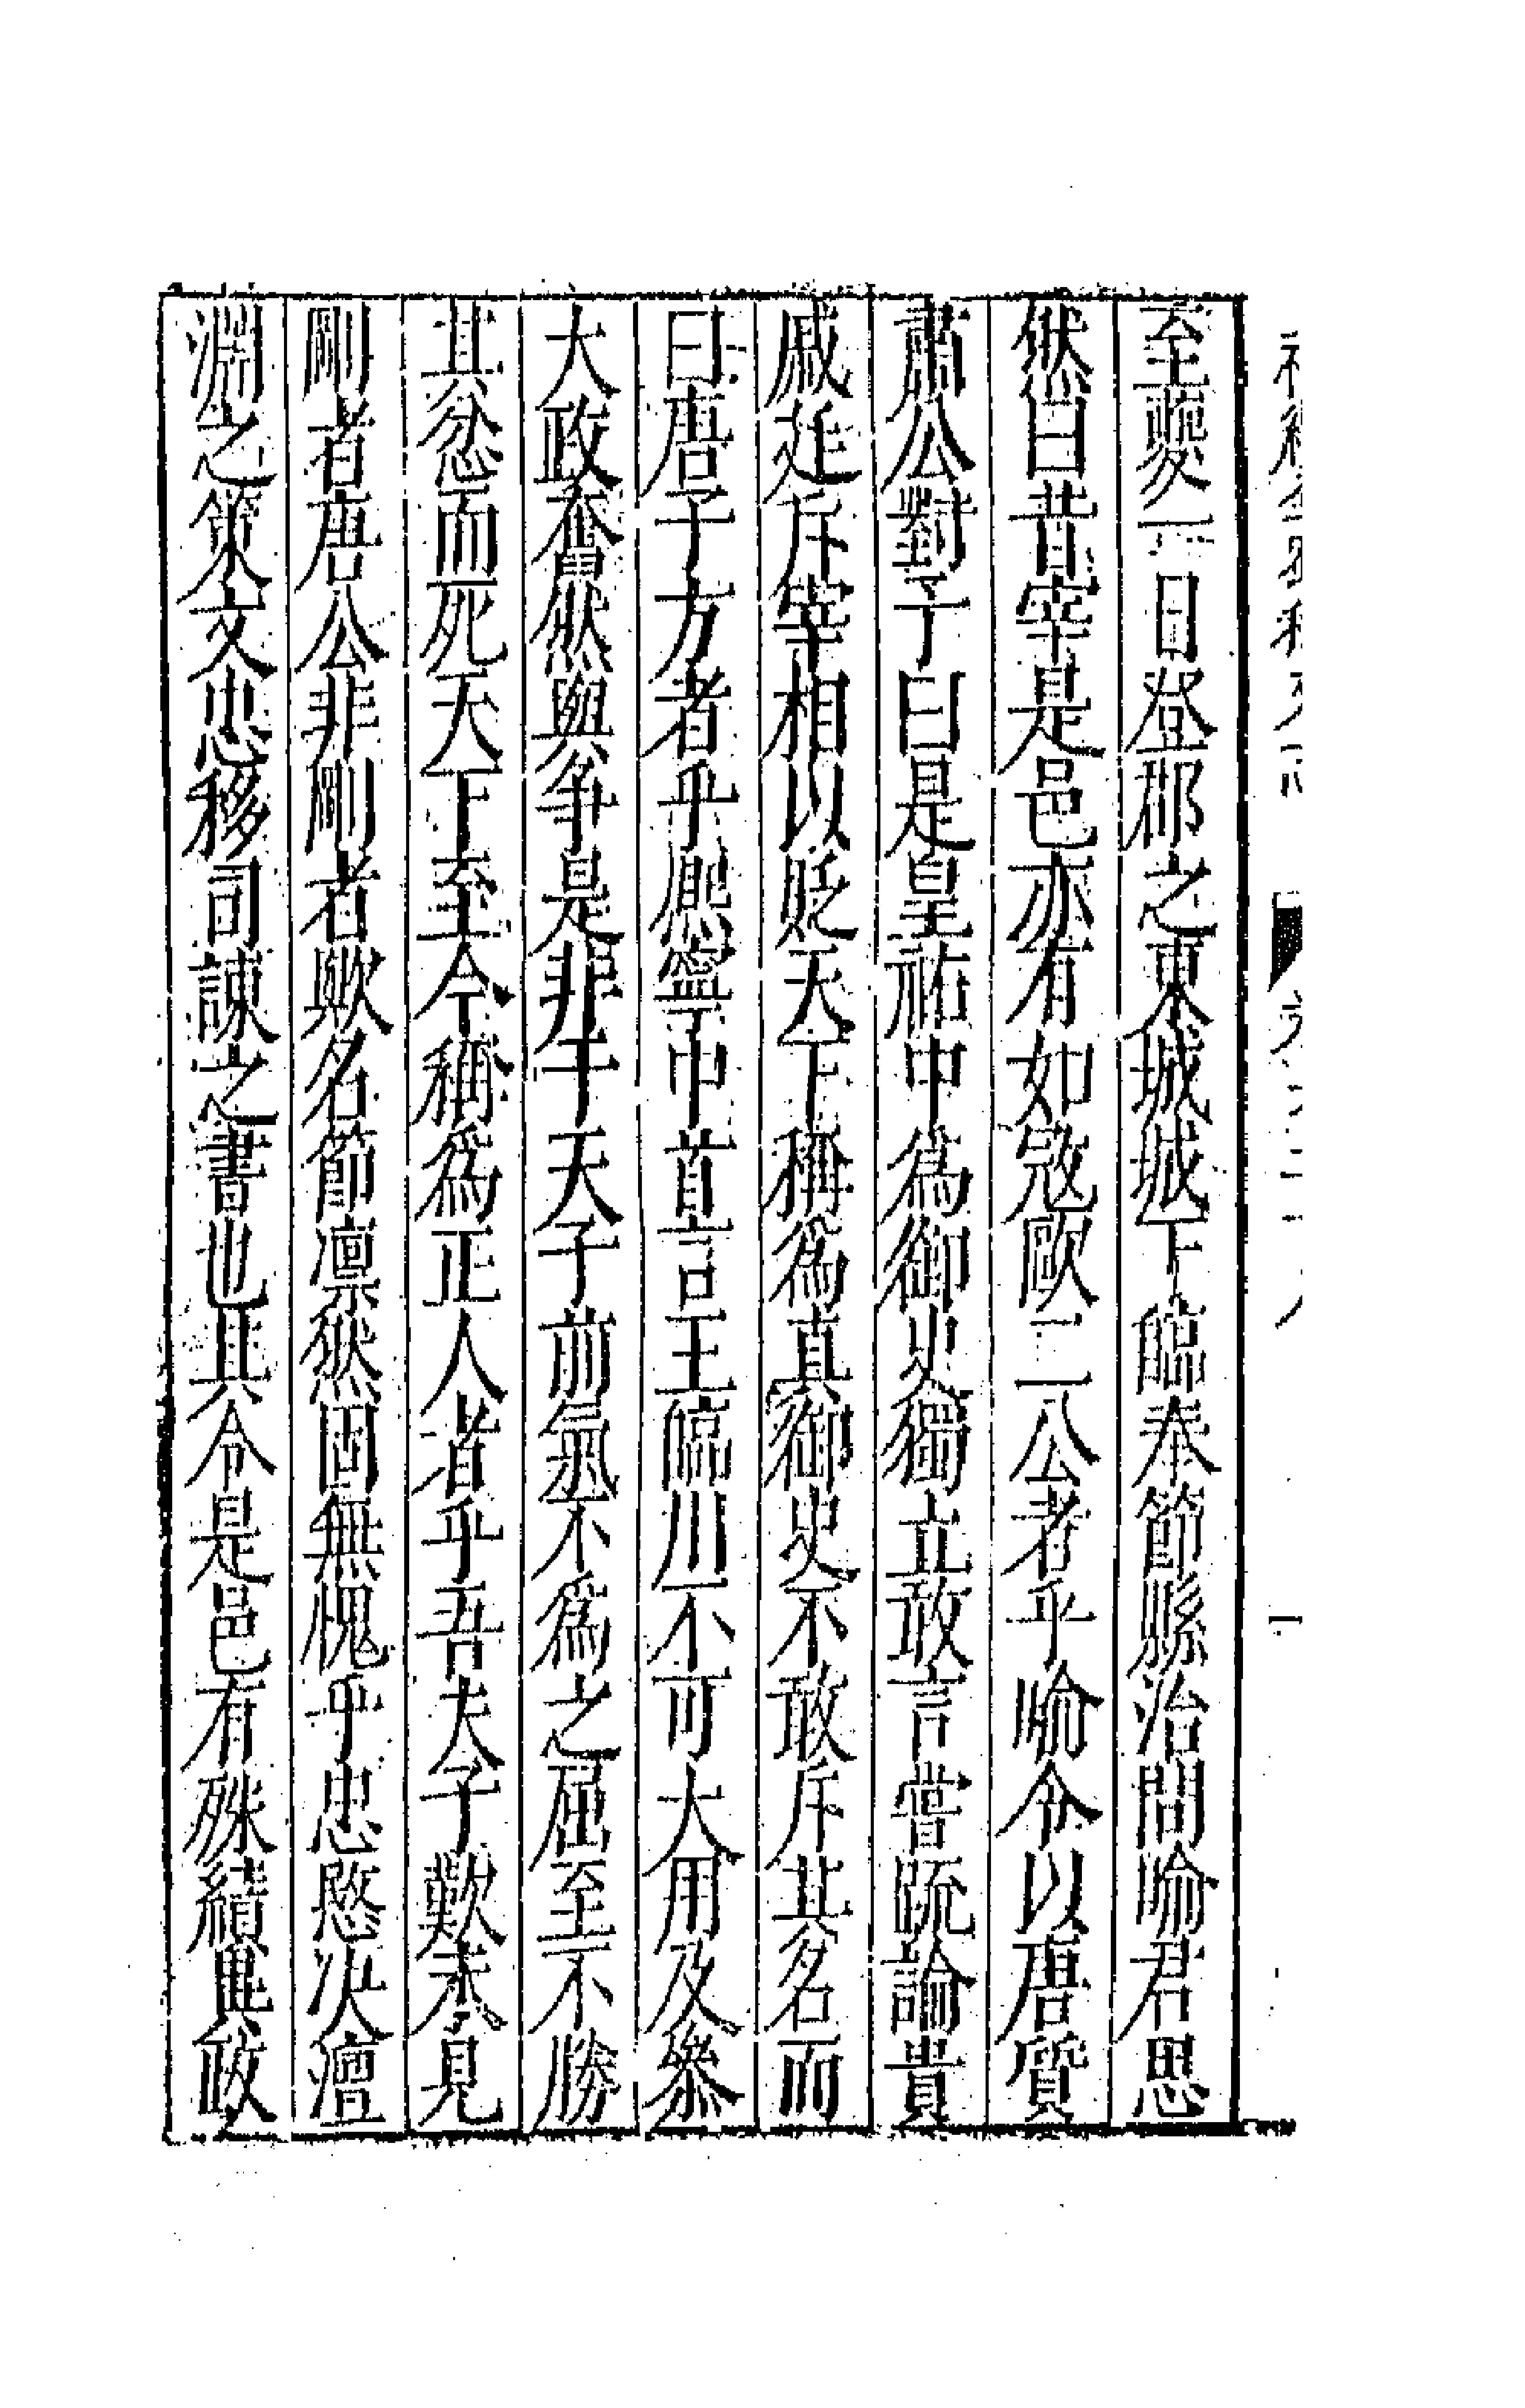 至夔一日登郡之東城城下臨奉節縣治問喻君思
然曰昔宰是邑亦有如寇歐二公者乎喻令以唐質
肅公對予曰是皇祐中爲御史獨立敢言嘗疏論貴
戚廷斥宰相以貶天下稱爲真御史不敢斥其名而
曰唐子方者乎熈寧中首言王臨川不可大用及叅
大政奮然與爭是非于天子前氣不爲之屈至不勝
其忿而死天下至今稱爲正人者乎吾夫子歎未見
剛者唐公非剛者歟名節凛然固無愧乎忠愍决澶
淵之策文忠移司諫之書也其令是邑有殊績異政